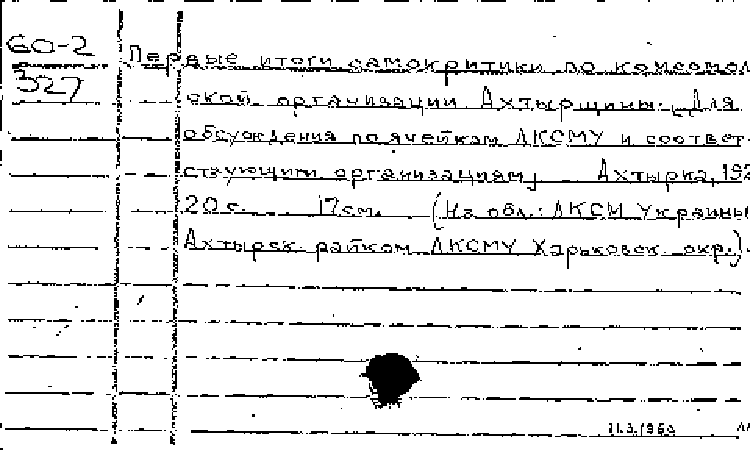 60-2
327
Первые итоги самокритики по комсомол
ской организации Ахтырщины. [Для
обсуждения по ячейкам ЛКСМУ и соответ-
ствующим организациям] Ахтырка, 192
20 с. 17 см. (На обл.: ЛКСМ Украины
Ахтырск. райком ЛКСМУ Харьковск. окр.).